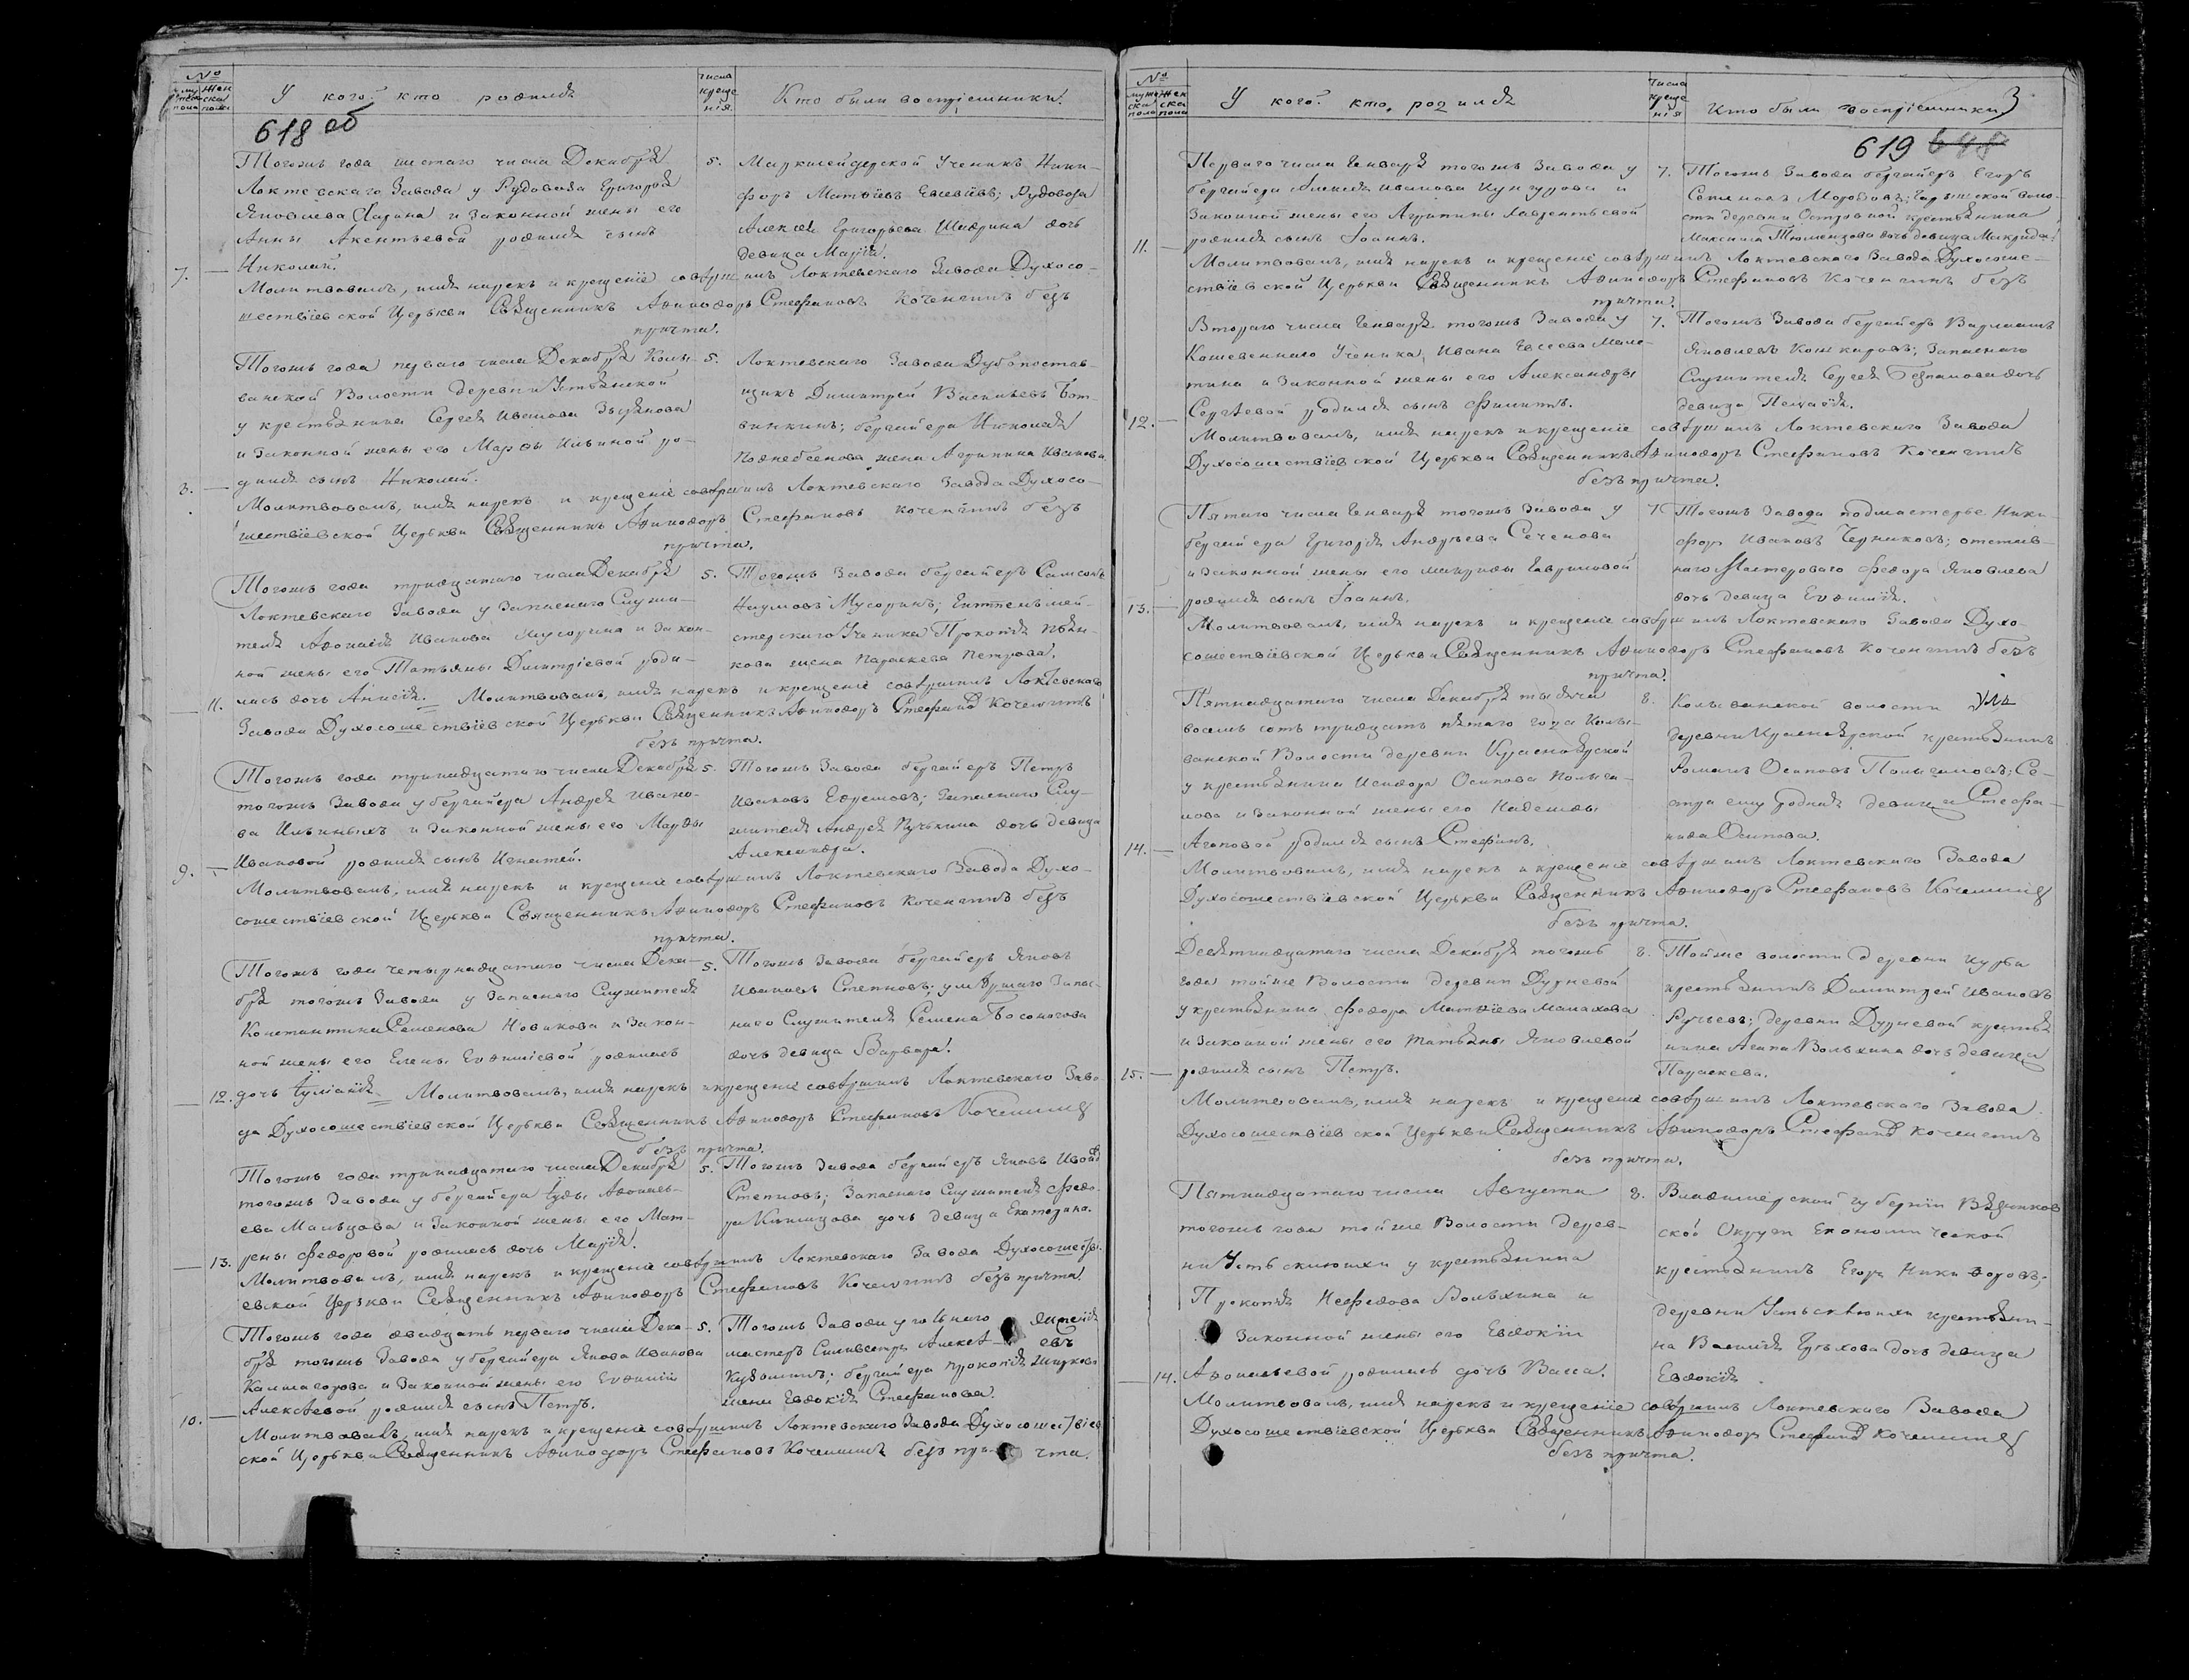 №
муже ска пола
Жен ска пола
У кого кто родился
числа креще нія
Кто были воспріемники.
618 об
Тогожъ года шестаго числа Декабря
Локтевскаго Завода у Рудовоза Григорья
Яковлева и законной жены его
Анны Акентьевой родился сынъ
7. — Николай.
5. Маркшейдерской Ученикъ Ники-
форъ Матвѣевъ Евсевіевъ; Рудовоза
Алексѣя Григорьева Шадрина дочь
девица Марія.
Молитвовалъ, имя нарекъ и крещеніе совершилъ Локтевскаго Завода Духосо-
шествіевской Церькви Священникъ Аѳинодоръ Стефановъ Коченгинъ безъ
причта.
Тогожъ года перваго числа Декабря Колы-
ванской Волости деревни Устьянской
у крестьянина Сергея Иванова Зырянова
и законной жены его Марѳы Ильиной ро-
8. — дился сынъ Николай.
5. Локтевскаго Завода Дубопостав-
щикъ Димитрей Васильевъ Бот-
винкинъ; бергайера Николая
Поднебеснова жена Агрипина Иванова.
Молитвовалъ, имя нарекъ и крещеніе совершилъ Локтевскаго Завода Духосо-
шествіевской Церькви Священникъ Аѳинодоръ Стефановъ Коченгинъ безъ
причта.
Тогожъ года тридцатаго числа Декабря
Локтевскаго Завода у Запаснаго Служи-
теля Аѳонасія Иванова Мусорина и закон-
ной жены его Татьяны Дмитріевой роди-
11. лась дочь Анисія.
5. Тогожъ Завода бергайеръ Самсонъ
Наумовъ Мусоринъ;
стерскаго Ученика Прокопія
кова жена Параскева Петрова.
Молитвовалъ, имя нарекъ и крещеніе совершилъ Локтевскаго
Завода Духосошествіевской Церькви Священникъ Аѳинодоръ Стефанов Коченгинъ
безъ причта.
Тогожъ года тринадцатаго числа Декабря
тогожъ Завода у бергайера Андрея Ивано-
ва Ильиныхъ и законной жены его Марѳы
9. — Ивановой родился сынъ Игнатей.
5. Тогожъ Завода бергайеръ Петръ
Ивановъ Ефремовъ; Запаснаго Слу-
жителя Андрея Пучькина дочь девица
Александра.
Молитвовалъ, имя нарекъ и крещеніе совершилъ Локтевскаго Завода Духо-
сошествіевской Церькви Священникъ Аѳинодоръ Стефановъ Коченгинъ безъ
причта.
Тогожъ года четырнадцатаго числа Дека-
бря тогожъ Завода у Запаснаго Служителя
Константина Семенова Новикова и закон-
ной жены его Елены Евѳиміевой родилась
12. дочь Іуліанія.
5. Тогожъ Завода бергайеръ Яковъ
Ивановъ Степновъ; умершаго Запас-
наго Служителя Семена Босоногова
дочь девица Варвара.
Молитвовалъ, имя нарекъ и крещеніе совершилъ Локтевскаго Заво-
да Духосошествіевской Церькви Священникъ Аѳинодоръ Стефановъ Коченгинъ
безъ причта.
Тогожъ года тринадцатаго числа Декабря
тогожъ Завода у бергайера Іуды Аѳонась-
ева Мальцова и законной жены его Мат-
13. рены Федоровой родилась дочь Марія.
5. Тогожъ Завода бергайеръ Яковъ Иванов
Степновъ; Запаснаго Служителя Федо-
ра дочь девица Екатерина.
Молитвовалъ, имя нарекъ и крещеніе совершилъ Локтевскаго Завода Духосошестви-
евской Церькви Священникъ Аѳинодоръ Стефановъ Коченгинъ безъ причта.
Тогожъ года двадцать перваго числа Дека-
бря тогожъ Завода у бергайера Якова Иванова
Калмагорова и законной жены его Евѳиміи
10. — Алексѣевой родился сынъ Петръ.
5. Тогожъ Завода
мастеръ Силивестръ Алексѣ-евъ
бергайера Прокопія
жена Евдокія Стефанова.
Молитвовалъ, имя нарекъ и крещеніе совершилъ Локтевскаго Завода Духосошествіев-
ской Церькви Священникъ Аѳинодоръ Стефановъ Коченгинъ безъ при-чта.
№
муже ска пола
Жен ска пола
У кого кто родился
Числа креще нія
Кто были воспріемники
3
619 618
Перваго числа Генваря тогожъ Завода у
бергайера Алексѣя Иванова Кунгурова и
законной жены его Агрипины Лаврентьевой
11. — родился сынъ Іоаннъ.
7. Тогожъ Завода бергайеръ Егоръ
Семеновъ Морозовъ; Чарышской воло-
сти деревни Островной крестьянина
Максима Тюменцова дочь девица Макрида.
Молитвовалъ, имя нарекъ и крещеніе совершилъ Локтевскаго Завода Духосоше-
ствіевской Церькви Священникъ Аѳинодоръ Стефановъ Коченгинъ безъ
причта.
Втораго числа Генваря тогожъ Завода у
Кошевеннаго Ученика, Ивана Евсеева Маля-
тина и законной жены его Александры
12. — Сергѣевой родился сынъ Филипъ.
7. Тогожъ Завода бергайеръ Варлаамъ
Яковлевъ Кошкаровъ; Запаснаго
Служителя Сергея дочь
девица Пелагія.
Молитвовалъ, имя нарекъ и крещеніе совершилъ Локтевскаго Завода
Духосошествіевской Церькви Священникъ Аѳинодоръ Стефановъ Коченгинъ
безъ причта.
Пятаго числа Генваря тогожъ Завода у
бергайера Григорія Андреева Сеченова
и законной жены его Макриды Гавриловой
13. — родился сынъ Іоаннъ.
7. Тогожъ Завода подмастерье Ники-
форъ Ивановъ Черниковъ; отстав-
наго Мастероваго Федора Яковлева
дочь девица Евѳимія.
Молитвовалъ, имя нарекъ и крещеніе совершилъ Локтевскаго Завода Духо-
сошествіевской Церькви Священникъ Аѳинодоръ Стефановъ Коченгинъ безъ
причта.
Пятнадцатаго числа Декабря тысяча
восемь сотъ тридцать пятаго года Колы-
ванской Волости деревни Красноярской
у крестьянина Исидора Осипова Полыга-
лова и законной жены его Надежды
14. — Агаповой родился сынъ Стефанъ.
8. Колыванской волости
деревни Красноярской крестьянинъ
Романъ Осиповъ Полыгаловъ; Се-
стра ему родная девица Стефа-
нида Осипова.
Молитвовалъ, имя нарекъ и крещеніе совершилъ Локтевскаго Завода
Духосошествіевской Церькви Священникъ Аѳинодоръ Стефановъ Коченгинъ
безъ причта.
Девятнадцатаго числа Декабря тогожъ
года тойже Волости деревни Дурневой
у крестьянина Федора Матвѣева Малахова
и законной жены его Татьяны Яковлевой
15. — родился сынъ Петръ.
8. Тойже волости деревни Курьи
крестьянинъ Димитрей Ивановъ
Ручьевъ; деревни Дурневой крестья
нина Агапа Вольхина дочь девица
Параскева.
Молитвовалъ, имя нарекъ и крещеніе совершилъ Локтевскаго Завода
Духосошествіевской Церькви Священникъ Аѳинодоръ Стефанов Коченгинъ
безъ причта.
Пятнадцатаго числа Августа
тогожъ года тойже Волости дерев-
ни Усть скиюихи у крестьянина
Прокопія Нефедова Вольхина и
Законной жены его Евдокіи
14. Аѳонасьевой родилась дочь Васса.
8. Владимерской губерніи Вязников
ской Округи Економической
крестьянинъ Егоръ Никифоровъ;
деревни Устьскиюихи крестьяни-
на Василія Грехова дочь девица
Евдокія.
Молитвовалъ, имя нарекъ и крещеніе совершилъ Локтевскаго Завода
Духосошествіевской Церькви Священникъ Аѳинодоръ Стефанов Коченгинъ
безъ причта.